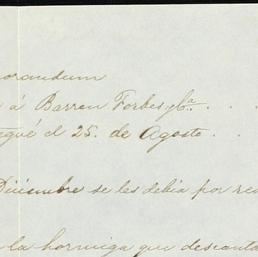 morandum
á Barren Forbes y Ca. . . .
gué el 25. de Agosto . .
Diciembre se les debia por res
la hormiga que descanta